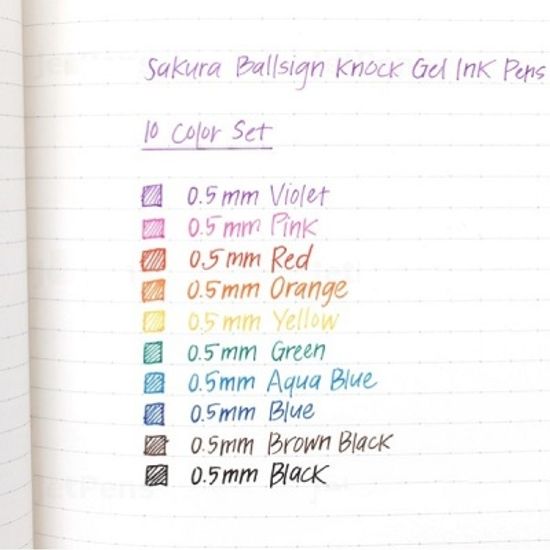 Sakura Ballsign Knock Gel Ink Pens
10 Color Set
0.5mm Violet
0.5mm Pink
0.5mm Red
0.5mm Orange
0.5mm Yellow
0.5mm Green
0.5mm Aqua Blue
0.5mm Blue
0.5mm Brown Black
0.5mm Black
JetPens